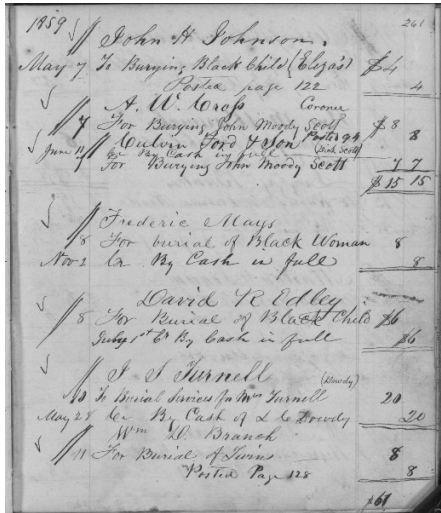 1859 261
John H Johnson.
May 7 To Burying Black Child (Eliza's) $4
Posted page 122 4
A. W. Coroner
7 For Burying John Moody Scott $8
Calvin Ford & Son Posted 94 8
June 11 Cr By Cash in full (Dick Scott)
7 For Burying John Moody Scott 7 7
$15 15
Frederic Mays
8 For burial of Black Woman 8
Nov 2 Cr By Cash in full 8
David R Edley
8 For Burial of Black Child $6
July 1st Cr By Cash in full $6
J S Turnell (Dowdy)
10 To Burial Services for Mrs Turnell 20
May 28 Cr By Cash of L C Dowdy 20
Wm D. Branch
11 For Burial of Twins 8
Posted Page 128 8
$61